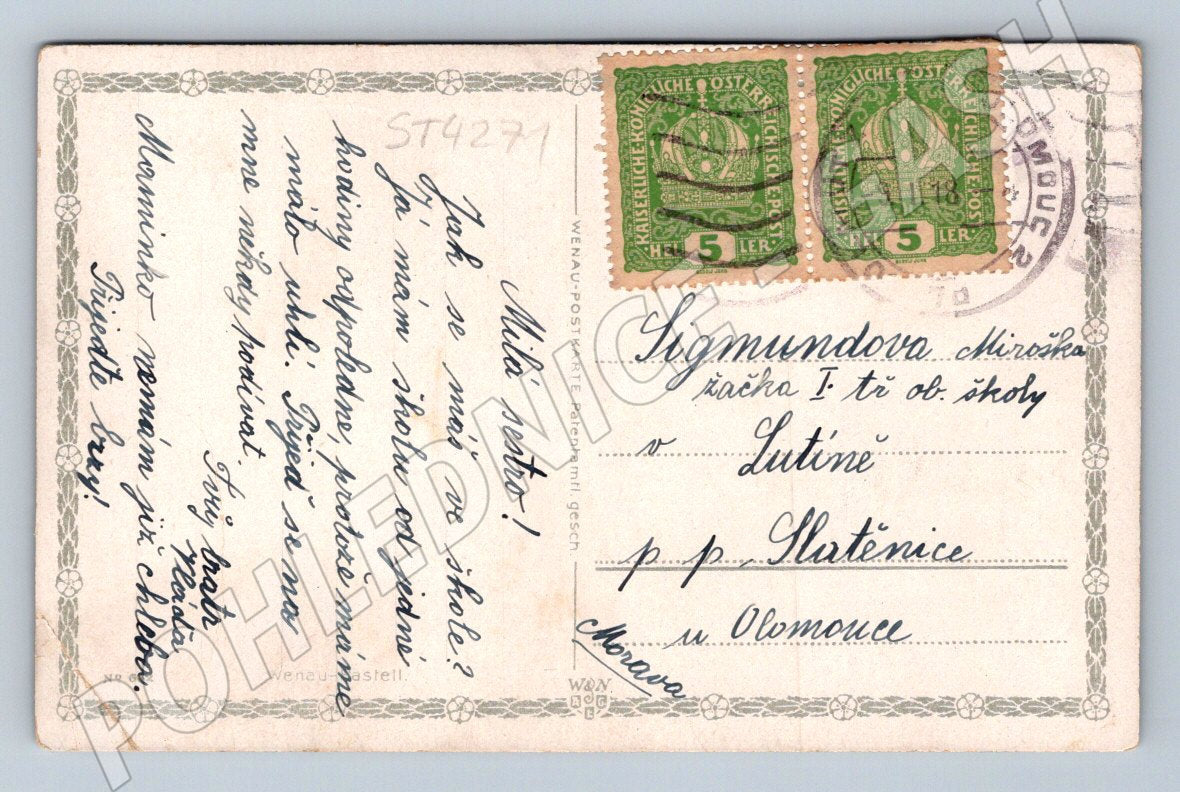 ST4271
Milá sestro!
Jak se máš ve škole?
Já mám školu od jedné
hodiny odpoledne, protože máme
málo uhlí. Přijeď se na
mne někdy podívat.
Tvůj bratr
Vláďa
Maminko nemám již chleba.
Přijeďte brzy!
Wenau-Pastell.
WENAU-POSTKARTE Patentamtl. gesch.
W&N
KAISERLICHE KÖNIGLICHE ÖSTERREICHISCHE POST
5
HELLER
KAISERLICHE KÖNIGLICHE ÖSTERREICHISCHE POST
5
HELLER
OLOMOUC 2
II 18
Sigmundova Miroška
žačka I. tř ob. školy
v Lutíně
p. p. Slatěnice
u Olomouce
Morava
POHLEDNICE - LASH